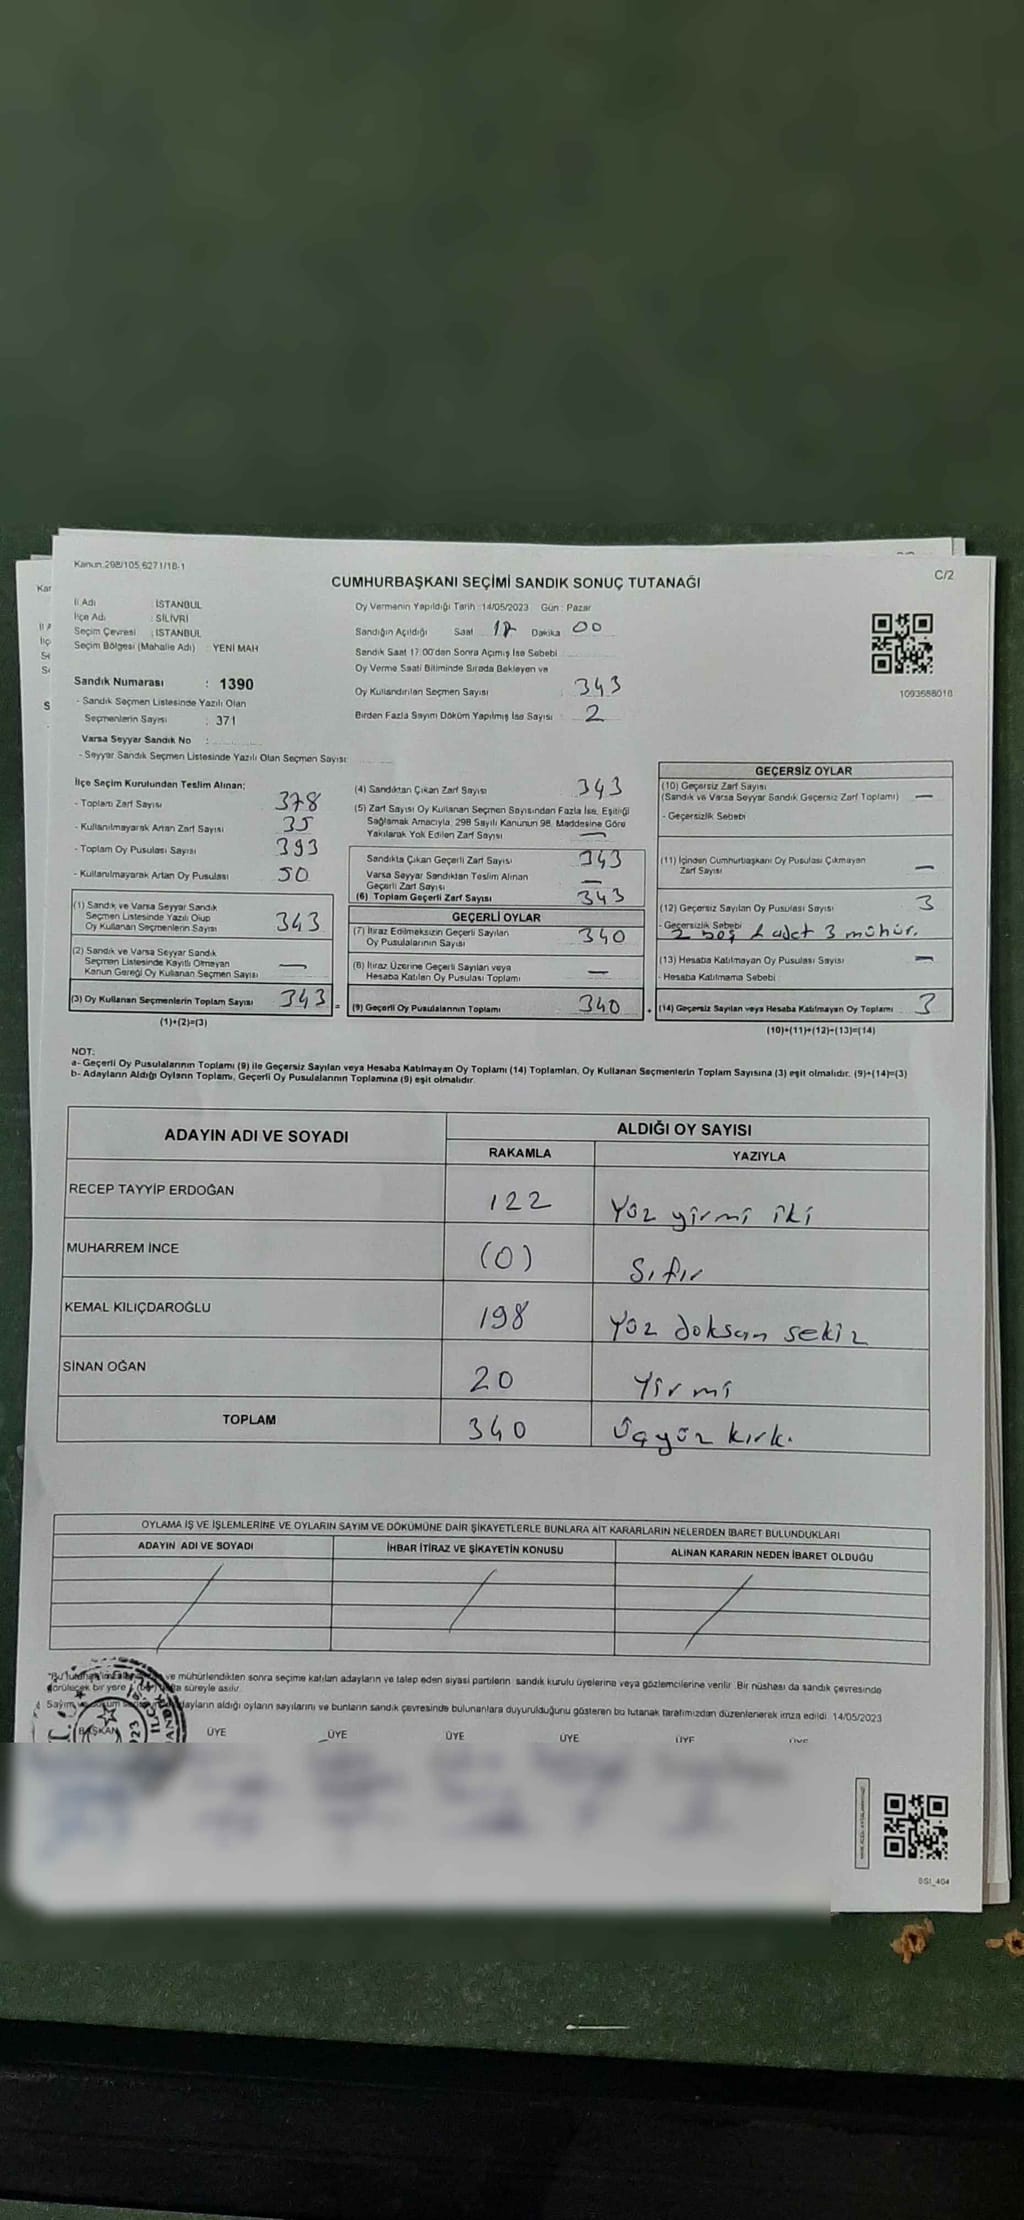 Kanun.298/105,6271/18-1
C/2
CUMHURBAŞKANI SEÇİMİ SANDIK SONUÇ TUTANAĞI
İl Adı : İSTANBUL
İlçe Adı : SİLİVRİ
Seçim Çevresi : İSTANBUL
Seçim Bölgesi (Mahalle Adı) : YENİ MAH
Sandık Numarası : 1390
- Sandık Seçmen Listesinde Yazılı Olan
Seçmenlerin Sayısı : 371
Varsa Seyyar Sandık No :
- Seyyar Sandık Seçmen Listesinde Yazılı Olan Seçmen Sayısı:
Oy Vermenin Yapıldığı Tarih :14/05/2023 Gün : Pazar
Sandığın Açıldığı Saat 17 Dakika 00
Sandık Saat 17:00'dan Sonra Açımış İse Sebebi
Oy Verme Saati Bitiminde Sırada Bekleyen ve
Oy Kullandırılan Seçmen Sayısı : 343
Birden Fazla Sayım Döküm Yapılmış İse Sayısı : 2
1093688018
İlçe Seçim Kurulundan Teslim Alınan;
- Toplam Zarf Sayısı 378
- Kullanılmayarak Artan Zarf Sayısı 35
- Toplam Oy Pusulası Sayısı 393
- Kullanılmayarak Artan Oy Pusulası 50
(1) Sandık ve Varsa Seyyar Sandık
Seçmen Listesinde Yazılı Olup
Oy Kullanan Seçmenlerin Sayısı 343
(2) Sandık ve Varsa Seyyar Sandık
Seçmen Listesinde Kayıtlı Olmayan
Kanun Gereği Oy Kullanan Seçmen Sayısı —
(3) Oy Kullanan Seçmenlerin Toplam Sayısı 343 =
(1)+(2)=(3)
(4) Sandıktan Çıkan Zarf Sayısı 343
(5) Zarf Sayısı Oy Kullanan Seçmen Sayısından Fazla İse, Eşitliği
Sağlamak Amacıyla, 298 Sayılı Kanunun 98. Maddesine Göre
Yakılarak Yok Edilen Zarf Sayısı —
Sandıkta Çıkan Geçerli Zarf Sayısı 343
Varsa Seyyar Sandıktan Teslim Alınan
Geçerli Zarf Sayısı —
(6) Toplam Geçerli Zarf Sayısı 343
GEÇERLİ OYLAR
(7) İtiraz Edilmeksizin Geçerli Sayılan
Oy Pusulalarının Sayısı 340
(8) İtiraz Üzerine Geçerli Sayılan veya
Hesaba Katılan Oy Pusulası Toplamı —
(9) Geçerli Oy Pusulalarının Toplamı 340 +
GEÇERSİZ OYLAR
(10) Geçersiz Zarf Sayısı
(Sandık ve Varsa Seyyar Sandık Geçersiz Zarf Toplamı) —
- Geçersizlik Sebebi
(11) İçinden Cumhurbaşkanı Oy Pusulası Çıkmayan
Zarf Sayısı —
(12) Geçersiz Sayılan Oy Pusulası Sayısı 3
- Geçersizlik Sebebi
2 boş 1 adet 3 mühür.
(13) Hesaba Katılmayan Oy Pusulası Sayısı —
- Hesaba Katılmama Sebebi
(14) Geçersiz Sayılan veya Hesaba Katılmayan Oy Toplamı 3
(10)+(11)+(12)+(13)=(14)
NOT:
a- Geçerli Oy Pusulalarının Toplamı (9) ile Geçersiz Sayılan veya Hesaba Katılmayan Oy Toplamı (14) Toplamları, Oy Kullanan Seçmenlerin Toplam Sayısına (3) eşit olmalıdır. (9)+(14)=(3)
b- Adayların Aldığı Oyların Toplamı, Geçerli Oy Pusulalarının Toplamına (9) eşit olmalıdır.
ADAYIN ADI VE SOYADI ALDIĞI OY SAYISI
RAKAMLA YAZIYLA
RECEP TAYYİP ERDOĞAN 122 Yüz yirmi iki
MUHARREM İNCE (0) Sıfır
KEMAL KILIÇDAROĞLU 198 Yüz doksan sekiz
SİNAN OĞAN 20 Yirmi
TOPLAM 340 Üçyüz kırk.
OYLAMA İŞ VE İŞLEMLERİNE VE OYLARIN SAYIM VE DÖKÜMÜNE DAİR ŞİKAYETLERLE BUNLARA AİT KARARLARIN NELERDEN İBARET BULUNDUKLARI
ADAYIN ADI VE SOYADI İHBAR İTİRAZ VE ŞİKAYETİN KONUSU ALINAN KARARIN NEDEN İBARET OLDUĞU
ve mühürlendikten sonra seçime katılan adayların ve talep eden siyasi partilerin sandık kurulu üyelerine veya gözlemcilerine verilir. Bir nüshası da sandık çevresinde
görülecek bir yere süreyle asılır.
adayların aldığı oyların sayılarını ve bunların sandık çevresinde bulunanlara duyurulduğunu gösteren bu tutanak tarafımızdan düzenlenerek imza edildi. 14/05/2023
BAŞKAN ÜYE ÜYE ÜYE ÜYE ÜYE ÜYE